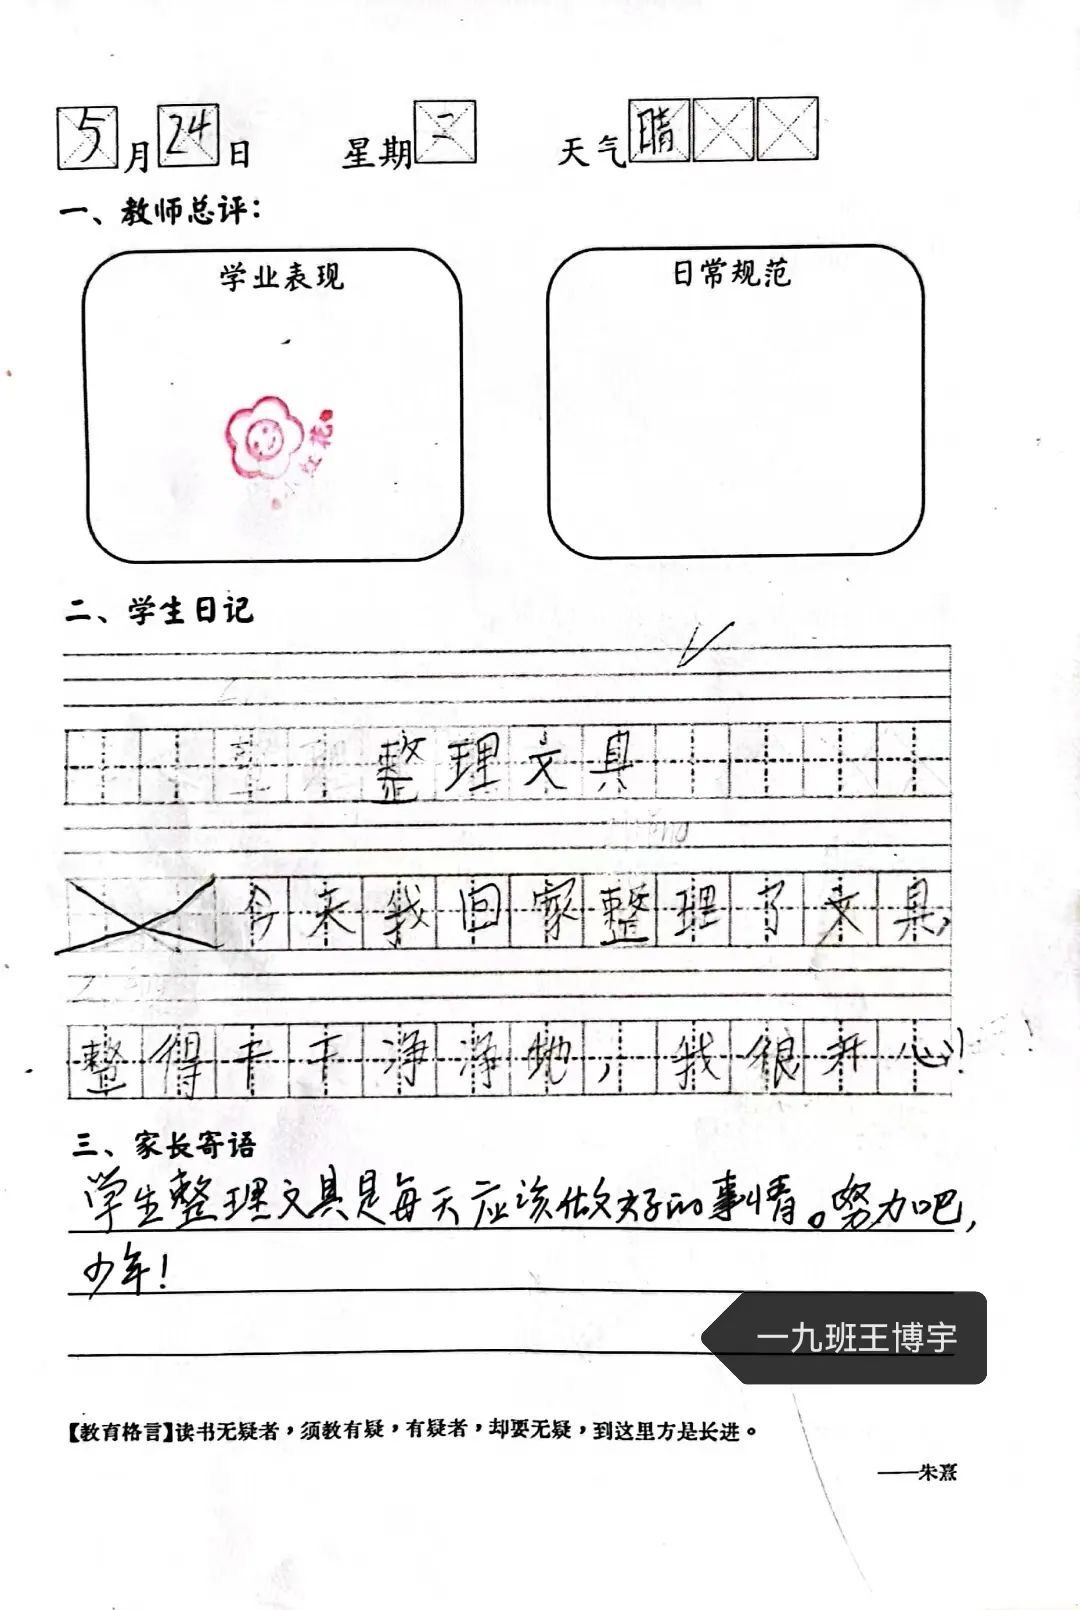 5月24日 星期二 天气晴
一、教师总评：
学业表现 日常规范
红花
二、学生日记
整理文具
今来我回家整理了文具，
整得干干净净地，我很开心！
三、家长寄语
学生整理文具是每天应该做好的事情。努力吧，
少年！
一九班王博宇
【教育格言】读书无疑者，须教有疑，有疑者，却要无疑，到这里方是长进。
——朱熹